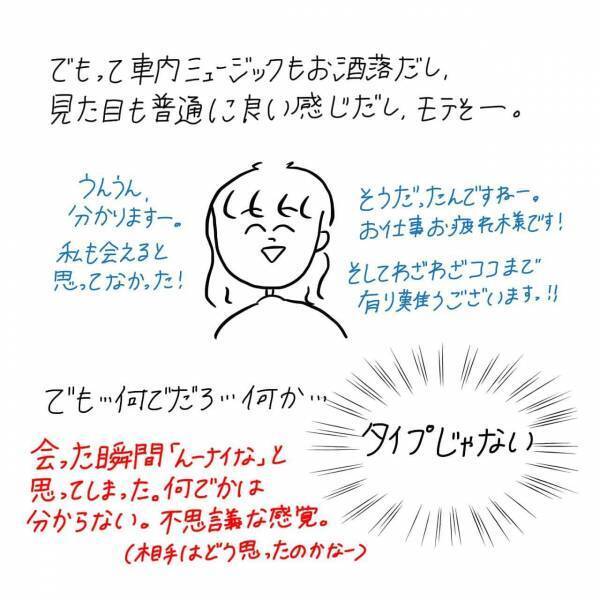 でもって車内ミュージックもお洒落だし、
見た目も普通に良い感じだし、モテそー。
うんうん、
分かりますー。
私も会えると
思ってなかった！
そうだったんですねー。
お仕事お疲れ様です！
そしてわざわざココまで
有り難うございます。!!
でも…何でだろ…何か…
タイプじゃない
会った瞬間「んーナイな」と
思ってしまった。何でかは
分からない。不思議な感覚。
(相手はどう思ったのかなー)